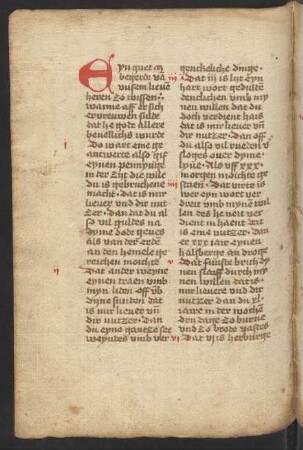 Eyn quet m
begerer vā
vnsen lieue
heren to wissen
waune aff er sich
ervrouwen sulde
dat he gode allere
beuellichs wurde
Do wart eme ge
antwerte also gif
eynen pennynge
in der zijt die wile
du is gebruchene
macht dat is mir
lieuer vnd dir nut
zer dan dat du al
so vil guldes na
dyme dode geues
als van der erdē
an den hemele ge
reichen mochte
ii Dat ander weyne
eynen traen vmb
myn liden off vṽ
dyne sunden dat
is mir lieuer vñ
dir nutzer dan
du eyne gantze see
weyndes vmb ver
gencheliche dinge
iii Dat iii is lijt eyn
hart wort gedult
denclichen vmb my
nen willen dat du
doch verdient hais
dat is mir lieuer vn̄
dir nutzer dan off
du also vil rueden v
sloges ouer dyme
lyue Als vff xxx
morgen moichte ge
staen
iiii Dat virte is
wirt eyn wort ver
drett vmb myne wil
len des he vier ver
dient in haent dat
is eme nutzer dan
er xxx iare eynen
halsberge an droge
v Dat funfte brich dy
nen slaiff durch my
nen willen dat is
mir lieuere vnd dir
nutzer dan du xl
iare in der woche
dru dage zo burne
vnd zo brode vastes
vi Dat vi is herburge